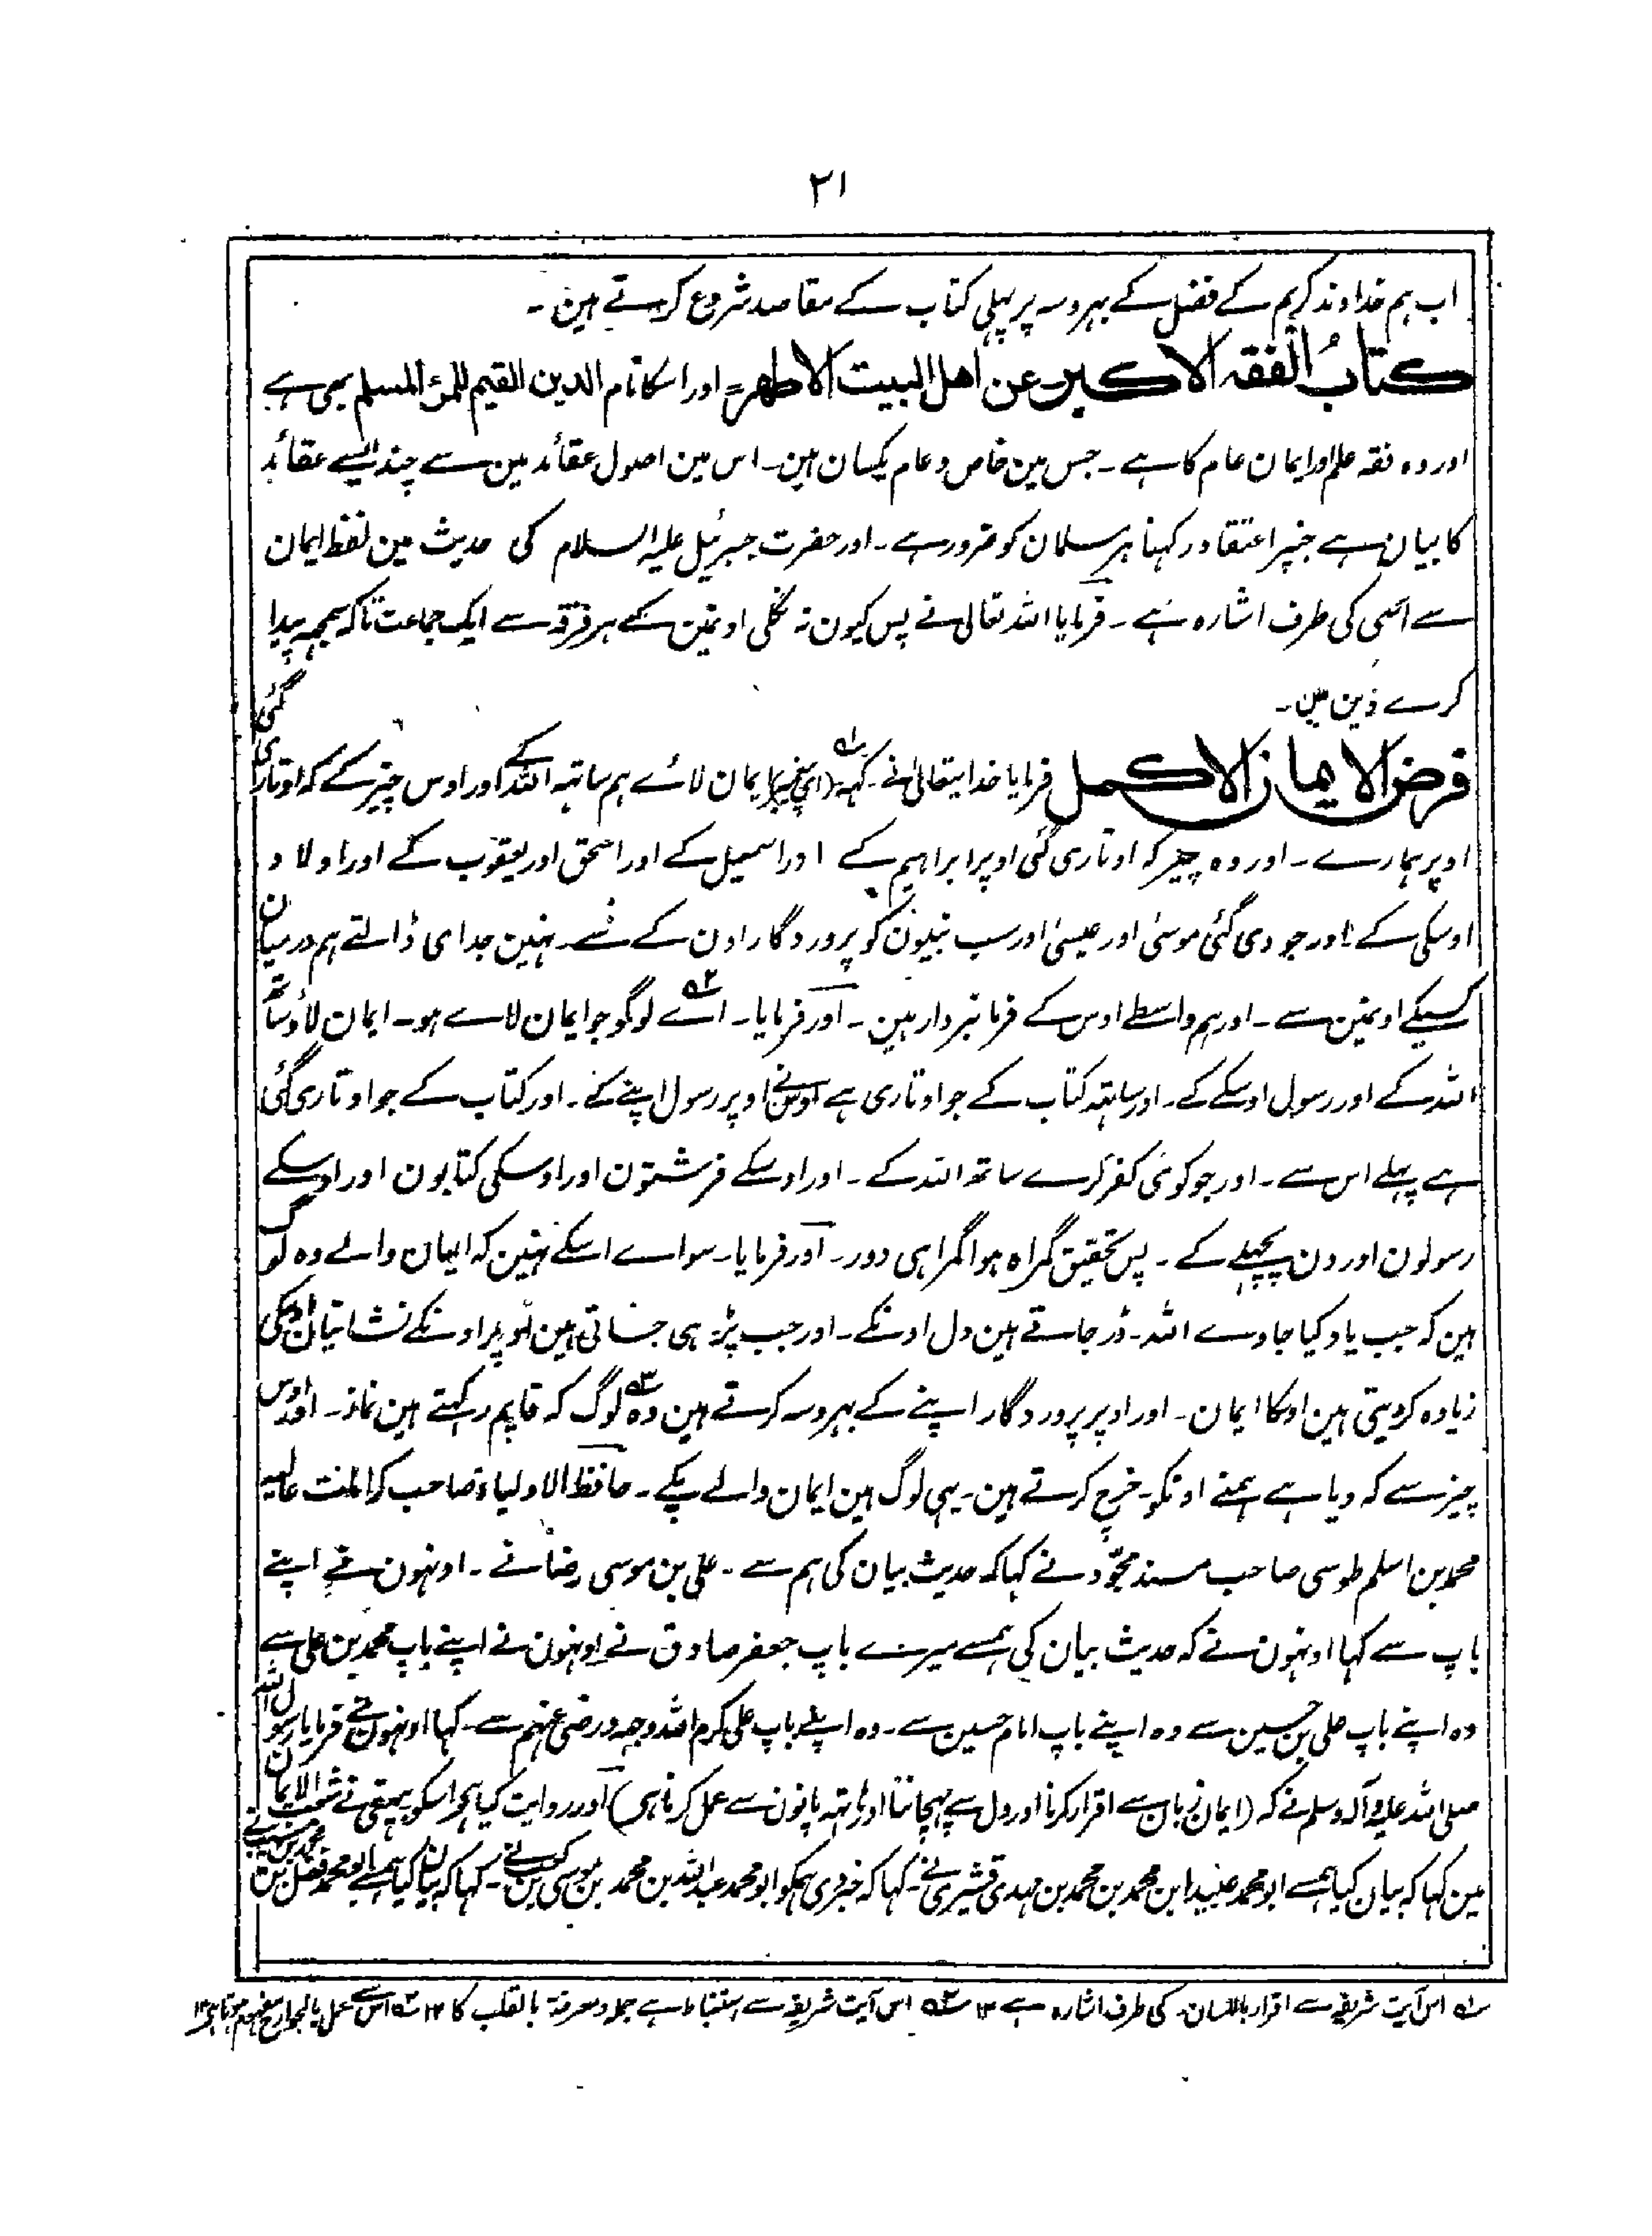 ۲۱
اب ہم خداوند کریم کے فضل کے بہروسہ پر پہلی کتاب کے مقاصد شروع کرتے ہین ۔
کتابُ الفقہ الاکبر عن اہل البیت الاطہر اور اسکا نام الدین القیم للمرٔ المسلم بہی ہے
اور وہ فقہ علم اور ایمان عام کا ہے ۔ جس مین خاص و عام یکسان ہین ۔ اس مین اصول عقائد مین سے چند ایسے عقائد
کا بیان ہے جنپر اعتقاد رکہنا ہر مسلمان کو ضرور ہے ۔ اور حضرت جبرئیل علیہ السلام کی حدیث مین لفظ ایمان
سے اسی کی طرف اشارہ ہے ۔ فرمایا اللہ تعالی نے پس کیون نہ نکلی اونمین کے ہر فرقہ سے ایک جماعت تاکہ سمجہہ پیدا
کرے دین مین ۔
فرض الایمان الاکمل فرمایا خدایتعالیٰ نے ۔ کہہ (ای پیغمبر) ایمان لائے ہم ساتہہ اللہ کے اور اوس چیز کے کہ اوتاری گئی
اوپر ہمارے ۔ اور وہ چیز کہ اوتاری گئی اوپر ابراہیم کے اور اسمعیل کے اور اسحق اور یعقوب کے اور اولاد
اوسکی کے اور جو دی گئی موسیٰ اور عیسیٰ اور سب نبیون کو پروردگار اون کے سے ۔ نہین جدای ڈالتے ہم درمیان
کسیکے اونمین سے ۔ اور ہم واسطے اوس کے فرمانبردار ہین ۔ اور فرمایا ۔ اے لوگو جو ایمان لاے ہو ۔ ایمان لاؤ ساتہہ
اللہ کے اور رسول اوسکے کے ۔ اور ساتہہ کتاب کے جو اوتاری ہے اوسنے اوپر رسول اپنے کے ۔ اور کتاب کے جو اوتاری گئی
ہے پہلے اس سے ۔ اور جو کوئی کفر کرے ساتھ اللہ کے ۔ اور اوسکے فرشتون اور اوسکی کتابون اور اوسکے
رسولون اور دن پچہلے کے ۔ پس تحقیق گمراہ ہوا گمراہی دور ۔ اور فرمایا ۔ سواے اسکے نہین کہ ایمان والے وہ لوگ
ہین کہ جب یاد کیا جاوے اللہ ۔ ڈر جاتے ہین دل اونکے ۔ اور جب پڑہی جاتی ہین اوپر اونکے نشانیان اوسکی
زیادہ کردیتی ہین اونکا ایمان ۔ اور اوپر پروردگار اپنے کے بہروسہ کرتے ہین وہ لوگ کہ قایم رکہتے ہین نماز ۔ اور اوس
چیز سے کہ دیا ہے ہمنے اونکو ۔ خرچ کرتے ہین ۔ یہی لوگ ہین ایمان والے پکے ۔ حافظ الاولیاء صاحب کرامت عالیہ
محمد بن اسلم طوسی صاحب مسند مجوّد نے کہا کہ حدیث بیان کی ہم سے ۔ علی بن موسی رضا نے ۔ اونہون نے اپنے
باپ سے کہا اونہون نے کہ حدیث بیان کی ہمسے میرے باپ جعفر صادق نے اونہون نے اپنے باپ محمد بن علی سے
وہ اپنے باپ علی بن حسین سے وہ اپنے باپ امام حسین سے ۔ وہ اپنے باپ علی کرم اللہ وجہہ ورضی عنہم سے ۔ کہا اونہون نے فرمایا رسول اللہ
صلی اللہ علیہ وآلہ وسلم نے کہ (ایمان زبان سے اقرار کرنا اور دل سے پہچاننا اور ہاتہہ پانون سے عمل کرنا ہی) اور روایت کیا ہی اسکو بیہقی نے شعب الایمان
مین کہا کہ بیان کیا ہمسے ابو محمد عبید ابن محمد بن محمد بن مہدی قشیری نے ۔ کہا کہ خبر دی ہمکو ابو محمد عبداللہ بن محمد بن موسی بن کعب نے ۔ کہا کہ بیان کیا ہمسے ابو محمد فضل بن محمد بن
اس آیت شریفہ سے اقرار باللسان کی طرف اشارہ ہے ۱۲ اس آیت شریفہ سے استنباط ہے جملہ ومعرفۃ بالقلب کا ۱۲ اس سے عمل بالجوارح مفہوم ہوتا ہی ۱۲